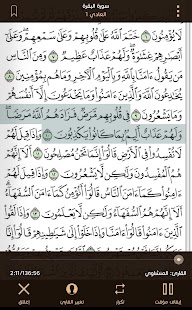 سورة البقرة
الحادي 1
لَا يُؤْمِنُونَ ٦ خَتَمَ ٱللَّهُ عَلَىٰ قُلُوبِهِمْ وَعَلَىٰ سَمْعِهِمْ وَعَلَىٰٓ
أَبْصَٰرِهِمْ غِشَٰوَةٌ وَلَهُمْ عَذَابٌ عَظِيمٌ ٧ وَمِنَ ٱلنَّاسِ
مَن يَقُولُ ءَامَنَّا بِٱللَّهِ وَبِٱلْيَوْمِ ٱلْءَاخِرِ وَمَا هُم بِمُؤْمِنِينَ ٨
يُخَٰدِعُونَ ٱللَّهَ وَٱلَّذِينَ ءَامَنُوا۟ وَمَا يَخْدَعُونَ إِلَّآ أَنفُسَهُمْ
وَمَا يَشْعُرُونَ ٩ فِى قُلُوبِهِم مَّرَضٌ فَزَادَهُمُ ٱللَّهُ مَرَضًا
وَلَهُمْ عَذَابٌ أَلِيمٌۢ بِمَا كَانُوا۟ يَكْذِبُونَ ١٠ وَإِذَا قِيلَ لَهُمْ
لَا تُفْسِدُوا۟ فِى ٱلْأَرْضِ قَالُوٓا۟ إِنَّمَا نَحْنُ مُصْلِحُونَ ١١
أَلَآ إِنَّهُمْ هُمُ ٱلْمُفْسِدُونَ وَلَٰكِن لَّا يَشْعُرُونَ ١٢ وَإِذَا
قِيلَ لَهُمْ ءَامِنُوا۟ كَمَآ ءَامَنَ ٱلنَّاسُ قَالُوٓا۟ أَنُؤْمِنُ كَمَآ ءَامَنَ
ٱلسُّفَهَآءُ أَلَآ إِنَّهُمْ هُمُ ٱلسُّفَهَآءُ وَلَٰكِن لَّا يَعْلَمُونَ ١٣
القارئ: المنشاوي
2:11/136:56
إيقاف مؤقت
تكرار
تغيير القارئ
إغلاق